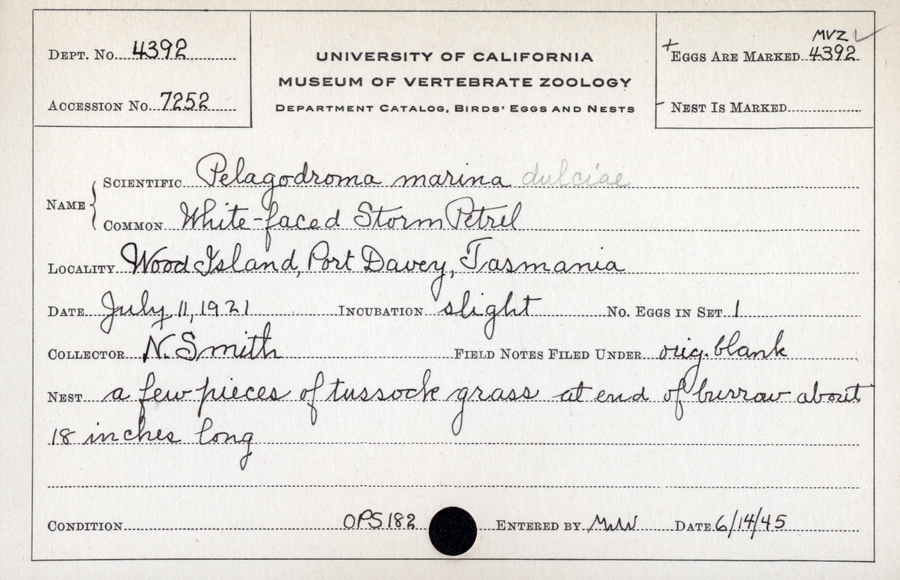 MVZ ✓
DEPT. No. 4392
UNIVERSITY OF CALIFORNIA
+ EGGS ARE MARKED 4392
MUSEUM OF VERTEBRATE ZOOLOGY
ACCESSION No. 7252
DEPARTMENT CATALOG, BIRDS' EGGS AND NESTS
- NEST IS MARKED
NAME { SCIENTIFIC Pelagodroma marina dulciae
COMMON White-faced Storm Petrel
LOCALITY Wood Island, Port Davey, Tasmania
DATE July 11, 1921 INCUBATION slight No. EGGS IN SET 1
COLLECTOR N. Smith FIELD NOTES FILED UNDER orig. blank
NEST a few pieces of tussock grass at end of burrow about
18 inches long
CONDITION OPS182 ENTERED BY MWW DATE 6/14/45